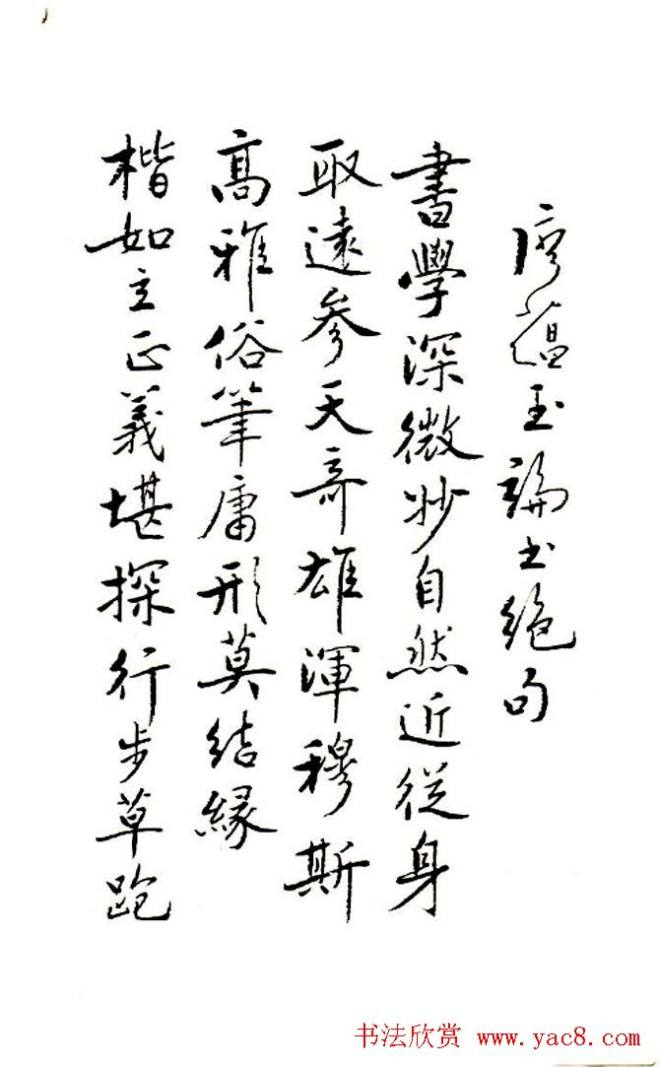 廖蕴玉論书绝句
書學深微妙自然近從身
取遠參天奇雄渾穆斯
高雅俗筆庸形莫结缘
楷如立正義堪探行步草跑
书法欣赏 www.yac8.com